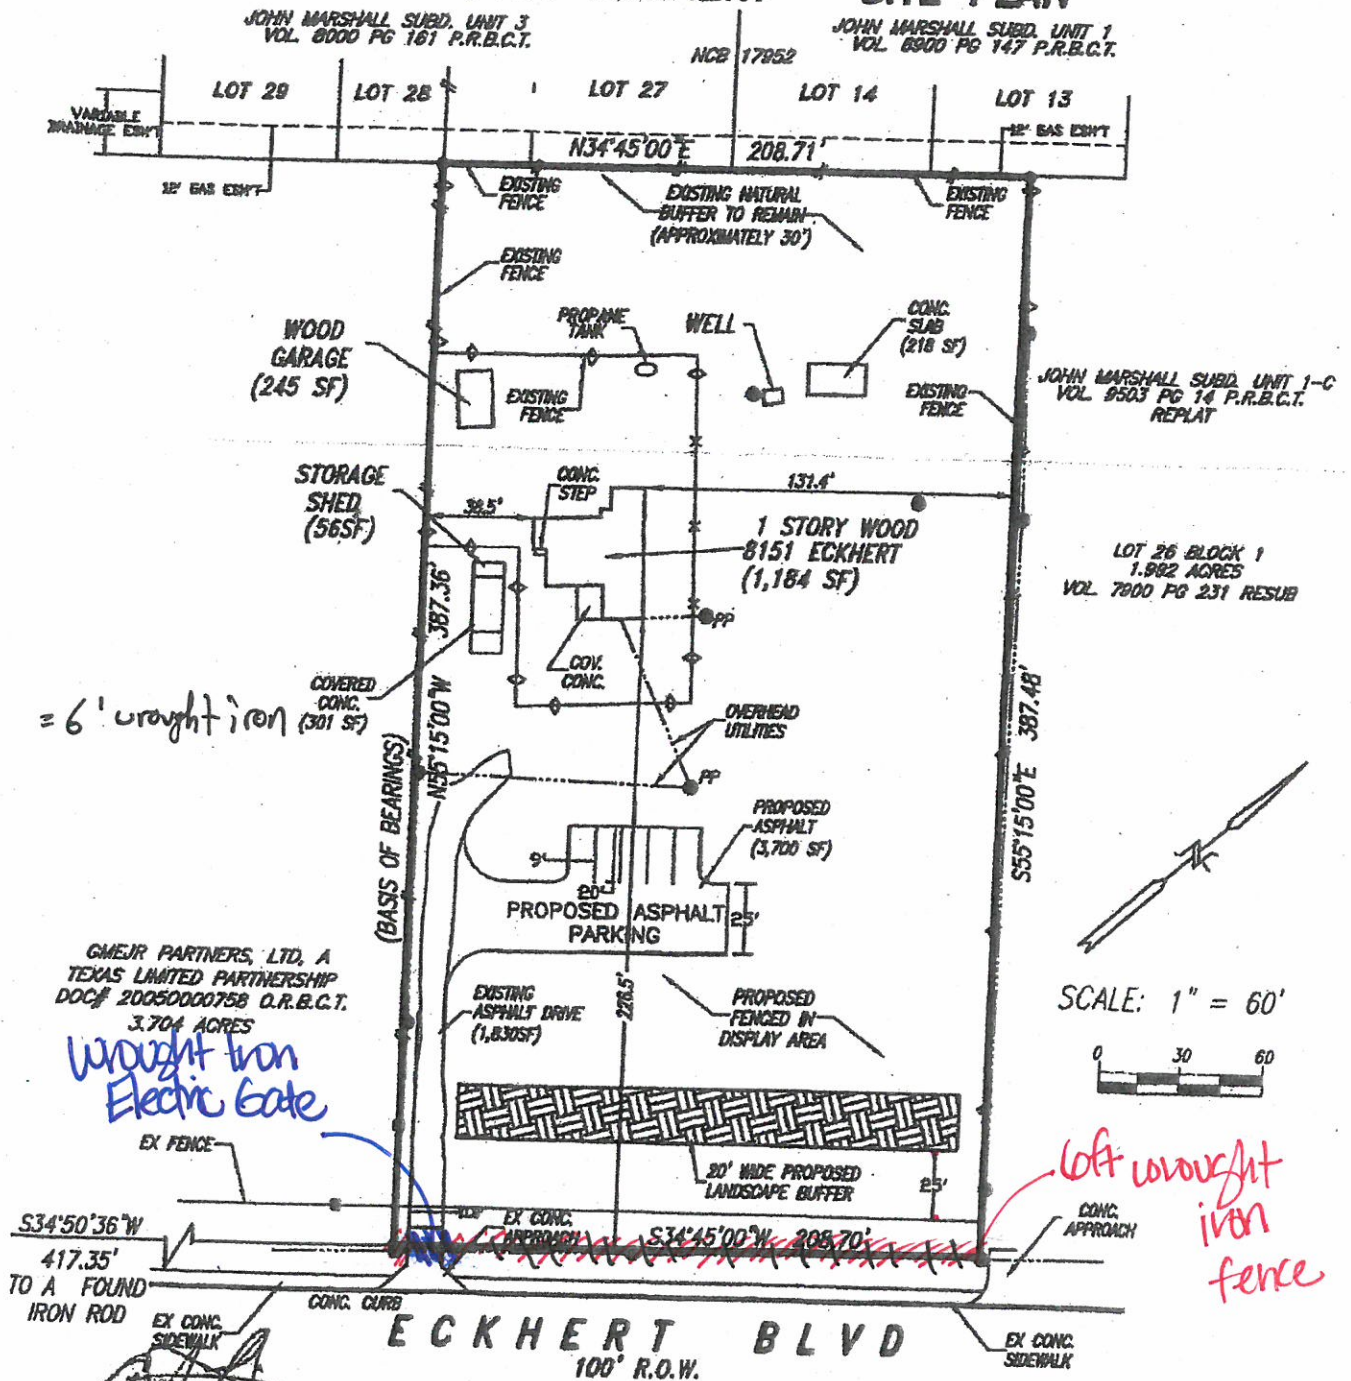 SITE PLAN
JOHN MARSHALL SUBD. UNIT 3
VOL. 8000 PG 161 P.R.B.C.T.
JOHN MARSHALL SUBD. UNIT 1
VOL. 8900 PG 147 P.R.B.C.T.
NCB 17952
LOT 29
LOT 28
LOT 27
LOT 14
LOT 13
VARIABLE
DRAINAGE ESM'T
12' GAS ESM'T
12' GAS ESM'T
N34°45'00"E 208.71'
EXISTING
FENCE
EXISTING NATURAL
BUFFER TO REMAIN
(APPROXIMATELY 30')
EXISTING
FENCE
EXISTING
FENCE
WOOD
GARAGE
(245 SF)
PROPANE
TANK
WELL
CONC.
SLAB
(218 SF)
EXISTING
FENCE
EXISTING
FENCE
JOHN MARSHALL SUBD. UNIT 1-C
VOL. 9503 PG 14 P.R.B.C.T.
REPLAT
STORAGE
SHED
(56SF)
CONC.
STEP
38.5'
131.4'
1 STORY WOOD
8151 ECKHERT
(1,184 SF)
LOT 26 BLOCK 1
1.992 ACRES
VOL. 7900 PG 231 RESUB
N55°15'00"W 387.36'
(BASIS OF BEARINGS)
PP
COV.
CONC.
COVERED
CONC.
(301 SF)
= 6' wrought iron
OVERHEAD
UTILITIES
PP
S55°15'00"E 387.48'
PROPOSED
ASPHALT
(3,700 SF)
9'
20'
PROPOSED ASPHALT
PARKING
25'
N
GMEJR PARTNERS, LTD, A
TEXAS LIMITED PARTNERSHIP
DOC# 20050000758 O.R.B.C.T.
3.704 ACRES
EXISTING
ASPHALT DRIVE
(1,830SF)
226.5'
PROPOSED
FENCED IN
DISPLAY AREA
SCALE: 1" = 60'
0 30 60
Wrought Iron
Electric Gate
EX FENCE
20' WIDE PROPOSED
LANDSCAPE BUFFER
25'
6ft wrought
iron
fence
CONC.
APPROACH
S34°50'36"W
417.35'
TO A FOUND
IRON ROD
EX CONC.
APPROACH
S34°45'00"W 208.70'
CONC. CURB
EX CONC.
SIDEWALK
ECKHERT BLVD
100' R.O.W.
EX CONC.
SIDEWALK